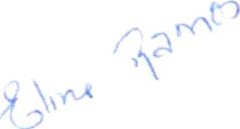 Eline Ramos